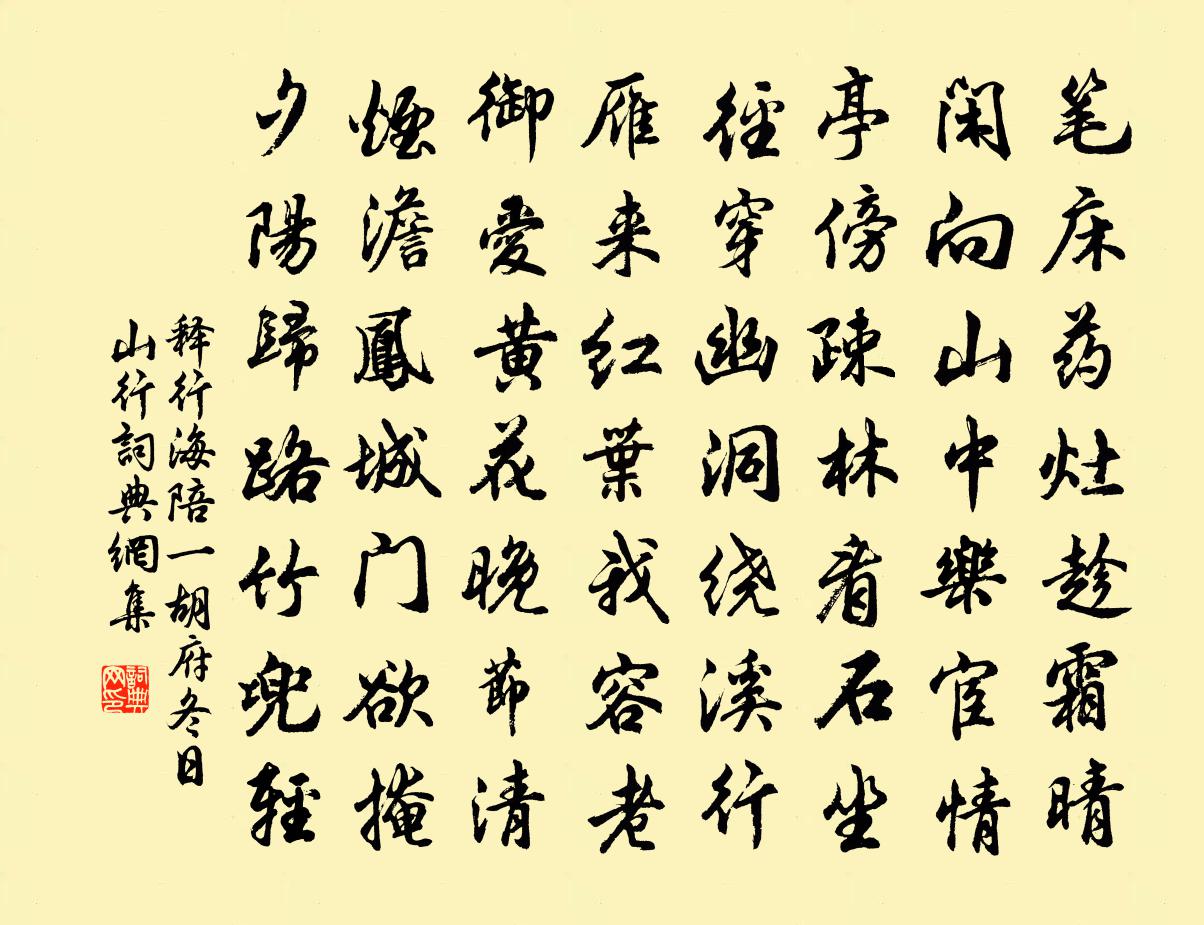 笔床药灶趁霜晴
闲向山中樂宦情
亭傍疎林看石坐
徑穿幽洞绕溪行
雁来红葉我容老
御愛黄花晚節清
煙澹鳳城门欲掩
夕陽歸路竹兜輕
释行海陪一胡府冬日
山行詞典網集
詞典
网印